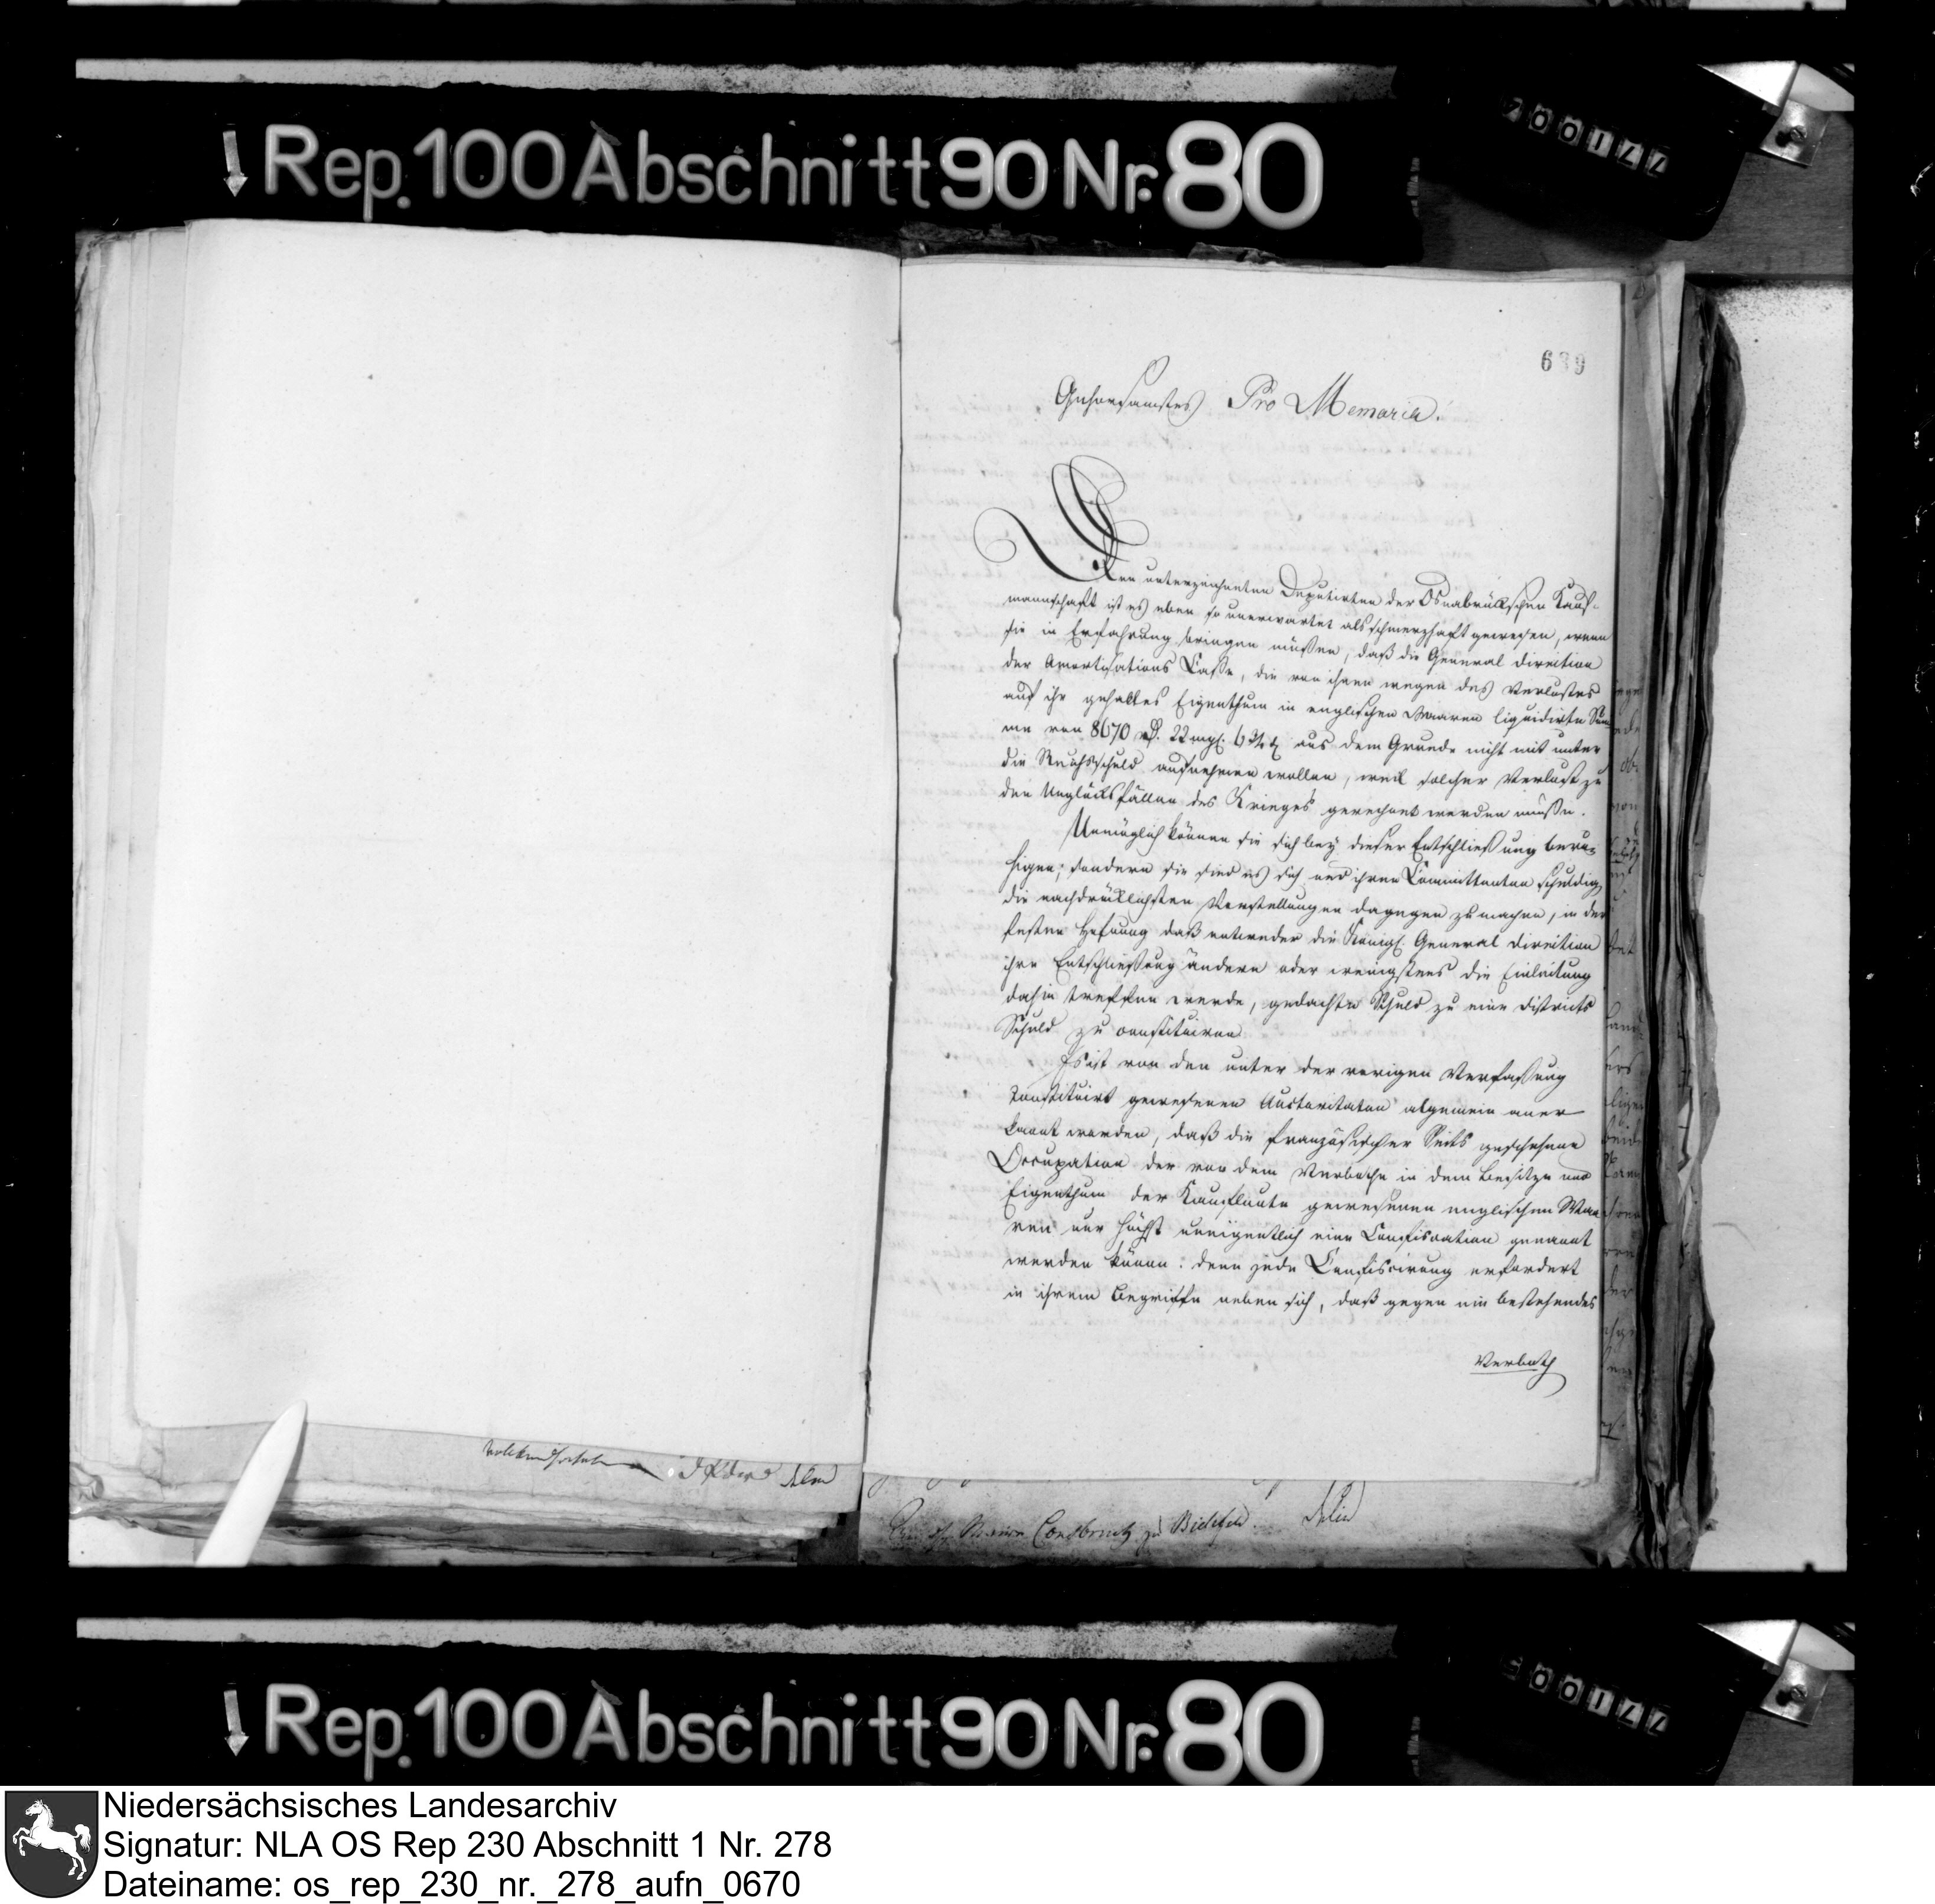 Rep. 100 Abschnitt 90 Nr. 80
689
Gehorsamstes Pro Memoria.
Den unterzeichneten Deputirten der Osnabrückschen Kauf-
mannschaft ist es eben so unerwartet als schmerzhaft gewesen, wenn
sie in Erfahrung bringen müßen, daß die General direction
der Amortisations Caße, die von ihnen wegen des Verlustes
auf ihr gehabtes Eigenthum in englischen Waaren liquidirte Sum-
me von 8670 rth. 22 mgl. aus dem Grunde nicht mit unter
die Reichsschuld aufnehmen wollen, weil solcher Verlust zu
den Unglücksfällen des Krieges gerechnet werden müße.
Unmöglich können sie sich bey dieser Entschließung beru-
higen; sondern sie sind es sich und ihren Committenten schuldig,
die nachdrücklichsten Vorstellungen dagegen zu machen, in der
festen Hofnung daß entweder die Königl. General direction
ihre Entschließung ändern oder wenigstens die Einleitung
dahin treffen werde, gedachte Schuld zu eine districts
Schuld zu constituiren
Es ist von den unter der vorigen Verfaßung
constituirt gewesenen Auctoritaten algemein aner
kannt worden, daß die französischer Seits geschehene
Occupation der vor dem Verbothe in dem Besitze und
Eigenthum der Kaufleute gewesenen englischen Waa-
ren nur höchst uneigentlich eine Confiscation genannt
werden könne: denn jede Confiscirung erfordert
in ihrem Begriffe neben sich, daß gegen ein bestehendes
Verboth
Consbruch zu Bielefeld.
Rep. 100 Abschnitt 90 Nr. 80
Niedersächsisches Landesarchiv
Signatur: NLA OS Rep 230 Abschnitt 1 Nr. 278
Dateiname: os_rep_230_nr._278_aufn_0670